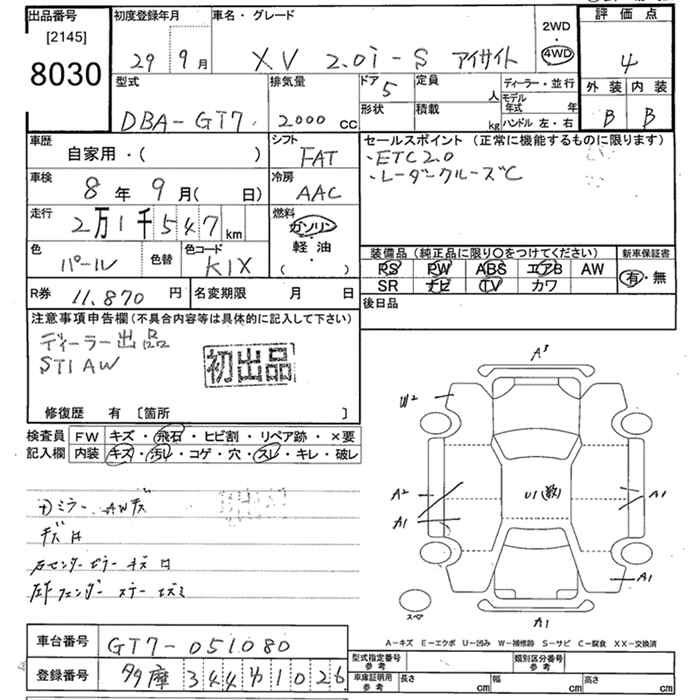 出品番号
[2145]
8030
初度登録年月
29 9月
車名・グレード
XV 2.0i-S アイサイト
2WD
・
4WD
評価点
4
外装 内装
B B
型式
DBA-GT7
排気量
2000 cc
ドア 5
形状
定員 人
積載 kg
ディーラー・並行
モデル年式 年
ハンドル 左・右
車歴
自家用・( )
シフト
FAT
セールスポイント (正常に機能するものに限ります)
・ETC2.0
・レーダークルーズC
車検
8年9月( 日)
冷房
AAC
走行
2万1千547km
燃料
ガソリン
軽油
( )
色
パール
色替
色コード
K1X
装備品 (純正品に限り〇をつけてください)
PS PW ABS エアB AW
SR ナビ TV カワ
新車保証書
有・無
R券 11,870 円
名変期限 月 日
後日品
注意事項申告欄(不具合内容等は具体的に記入して下さい)
ディーラー出品
STI AW
初出品
修復歴 有 [箇所 ]
検査員
記入欄
FW キズ・飛石・ヒビ割・リペア跡・×要
内装 キズ・汚れ・コゲ・穴・スレ・キレ・破レ
A3
W2
A2
A1
U1(数)
A1
A1
A1
スペア
A-キズ E-エクボ U-凹み W-補修跡 S-サビ C-腐食 XX-交換済
車台番号 GT7-051080
登録番号
344
1026
型式指定番号
参考
類別区分番号
参考
車庫証明用
参考
長さ cm 幅 cm 高さ cm